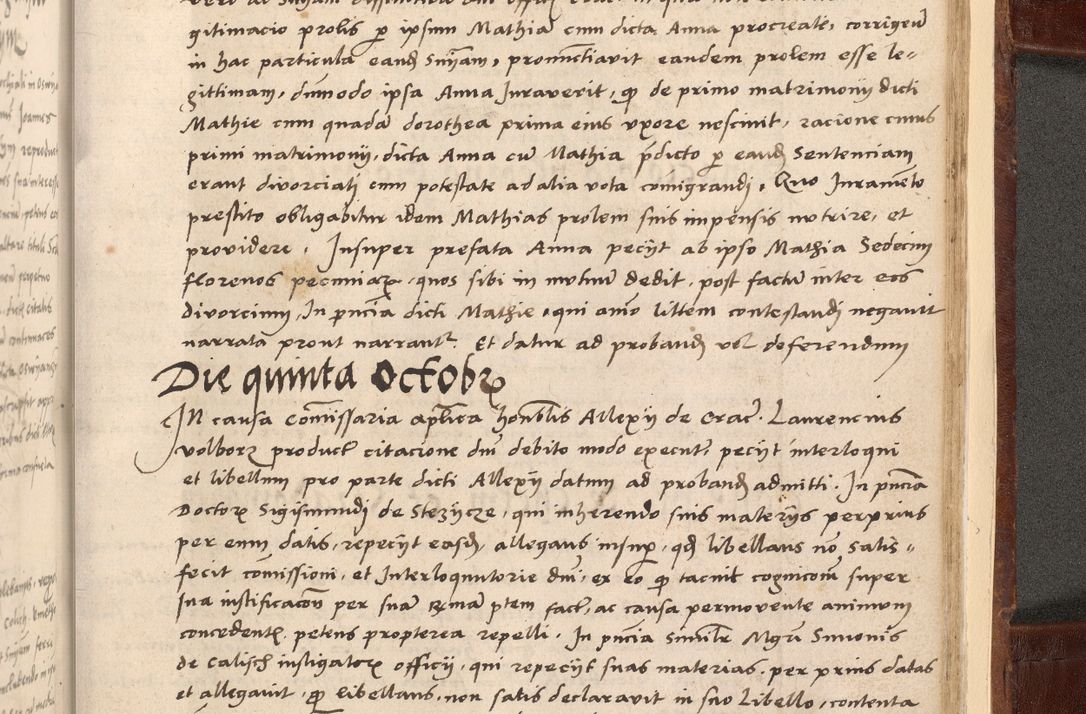 gitimacio prolis p ipsum Mathiā cum dicta Anna procreate, corrigen̄
in hac particula eand Sniam, pronunctiavit eandem prolem esse le-
gittimam, dūmodo ipsa Anna Juraverit, qp de primo matrimonij dicti
Mathie cum quadā dorothea prima eius uxore nescivit, racione cuius
primi matrimonij, dicta Anna cū Mathia p̄dicto p eand Sentenciam
erant divorciati cum potestate ad alia vota comigrandi, Quo Juramēto
prestito obligabitur idem Mathias prolem suis impensis nutrire, et
providere. Insuper prefata Anna pecijt ab ipso Mathia Sedecim
florenos pecuniarꝝ, quos sibi in mutuū dedit, post factū inter eos
divorcium, In pn̄cia dicti Mathie, qui aīo littem contestandj negavit
narrata prout narrantᵣ. Et datur ad proband vel deferendum
Die quinta Octobrꝝ
IN causa Com̄issaria ap̄lica hon̄blis Allexij de Crac̄. Laurencius
volborꝫ product citacione dn̄i debito modo execut, pecijt interloqui
et libellum pro parte dicti Allexij datum ad proband admitti. In pn̄cia
Doctorꝫ Sigismundi de Stezycze, qui inherendo suis materijs perprius
per eum datis, repecijt easd, allegans insup, qd libellans nō satis-
fecit com̄issioni, et Interloqutorie dn̄i, ex eo qp tacuit cognicom̄ super
sua iustificacōn per suā ptem fact, ac causa permovente animum
concedent, petens propterea repelli. In pn̄cia Similr Mgri Simonis
de Calisch instigatorꝫ officij, qui repecijt suas materias, per prius datas
et allegavit, qp libellans, non satis declaravit in suo Libello, contenta